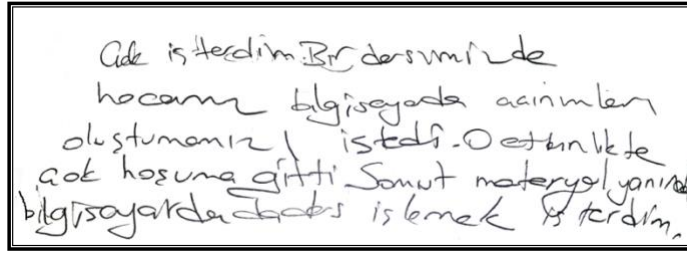 çok isterdim. Bir dersimizde
hocamız bilgisayarda açınımları
oluşturmamızı istedi. O etkinlikte
çok hoşuma gitti. Somut materyal yanında
bilgisayarda ders işlemek isterdim.